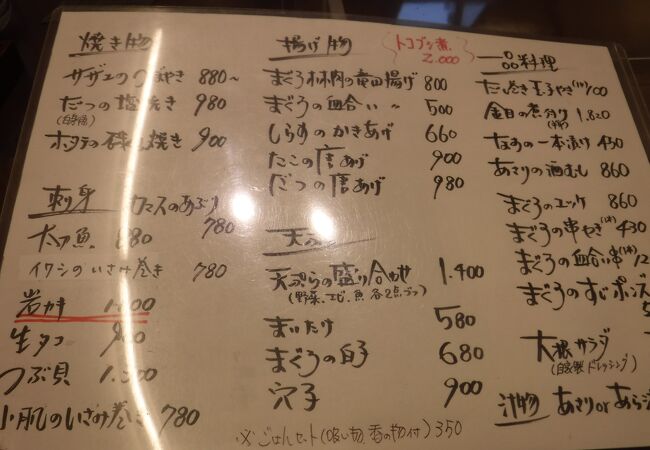 焼き物
サザエのつぼやき 880~
だつの塩焼き 980
(自家製)
ホタテの磯焼き 900
刺身
カマスのあぶり 780
太刀魚 880
イワシのいさみ巻き 780
岩カキ
生タコ 900
つぶ貝
小肌のいさみ巻き 780
揚げ物
トコブシ煮
2.000
まぐろ 肉の竜田揚げ 800
まぐろの血合い 〃 500
しらすのかきあげ 660
たこの唐あげ 900
だつの唐あげ 980
天ぷら
天ぷらの盛り合わせ 1.400
(野菜、エビ、魚 各2点づつ)
まいたけ 580
まぐろの白子 680
穴子 900
※ごはんセット(吸い物、香の物付) 350
一品料理
だし巻き玉子やき
金目の煮付け 1.820
なすの一本漬け 430
あさりの酒むし 860
まぐろのユッケ 860
まぐろの串やき(1本) 430
まぐろの血合い串(1本)
まぐろのすじポンズ
大根サラダ
(自家製ドレッシング)
汁物 あさりorあら